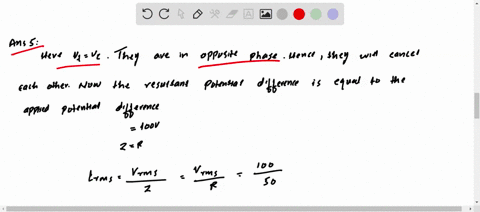 Ans 5:
Here VL = Vc . They are in opposite phase. Hence, they will cancel
each other. Now the resultant potential difference is equal to the
applied potential difference
= 100V
Z = R
Irms = Vrms / Z = Vrms / R = 100 / 50